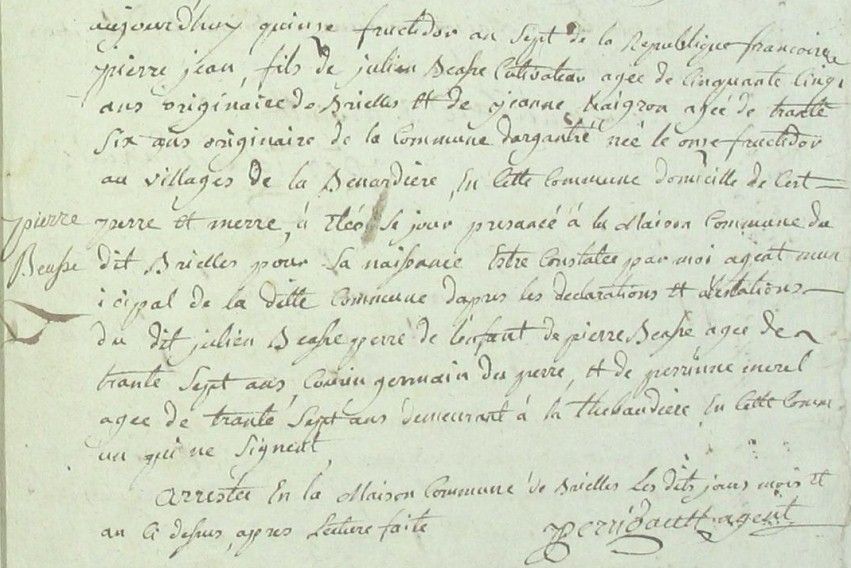 aujourd'huy quinse fructidor an Sept de la Republique francoise
pierre jean, fils de julien Beasse Cultivateur agee de Cinquante Cinq
ans originaire de Brielles Et de jeanne agée de trante
Six ans originaire de la Commune dargantré neé le onse fructidor
au villages de la Benardiere, En Cette Commune domicille de Cest
perre Et merre, à Eté Se jour presancé à la Maison Commune du
pierre
Beasse
dit Brielles pour Sa naissance Estre Constatée par moi agent mun
icipal de la ditte Commune dapres les declarations Et attestations
du dit julien Beasse perre de lenfant de pierre Beasse agee de
trante Sept ans, Cousin germain du perre, Et de perrinne morel
agee de trante Sept ans demeurant à la thebaudiere En Cette Comm
un qui ne Signent
arrestée En la Maison Commune de Brielles Les dits jours mois Et
an Ci dessus, apres Lecture faite
agent